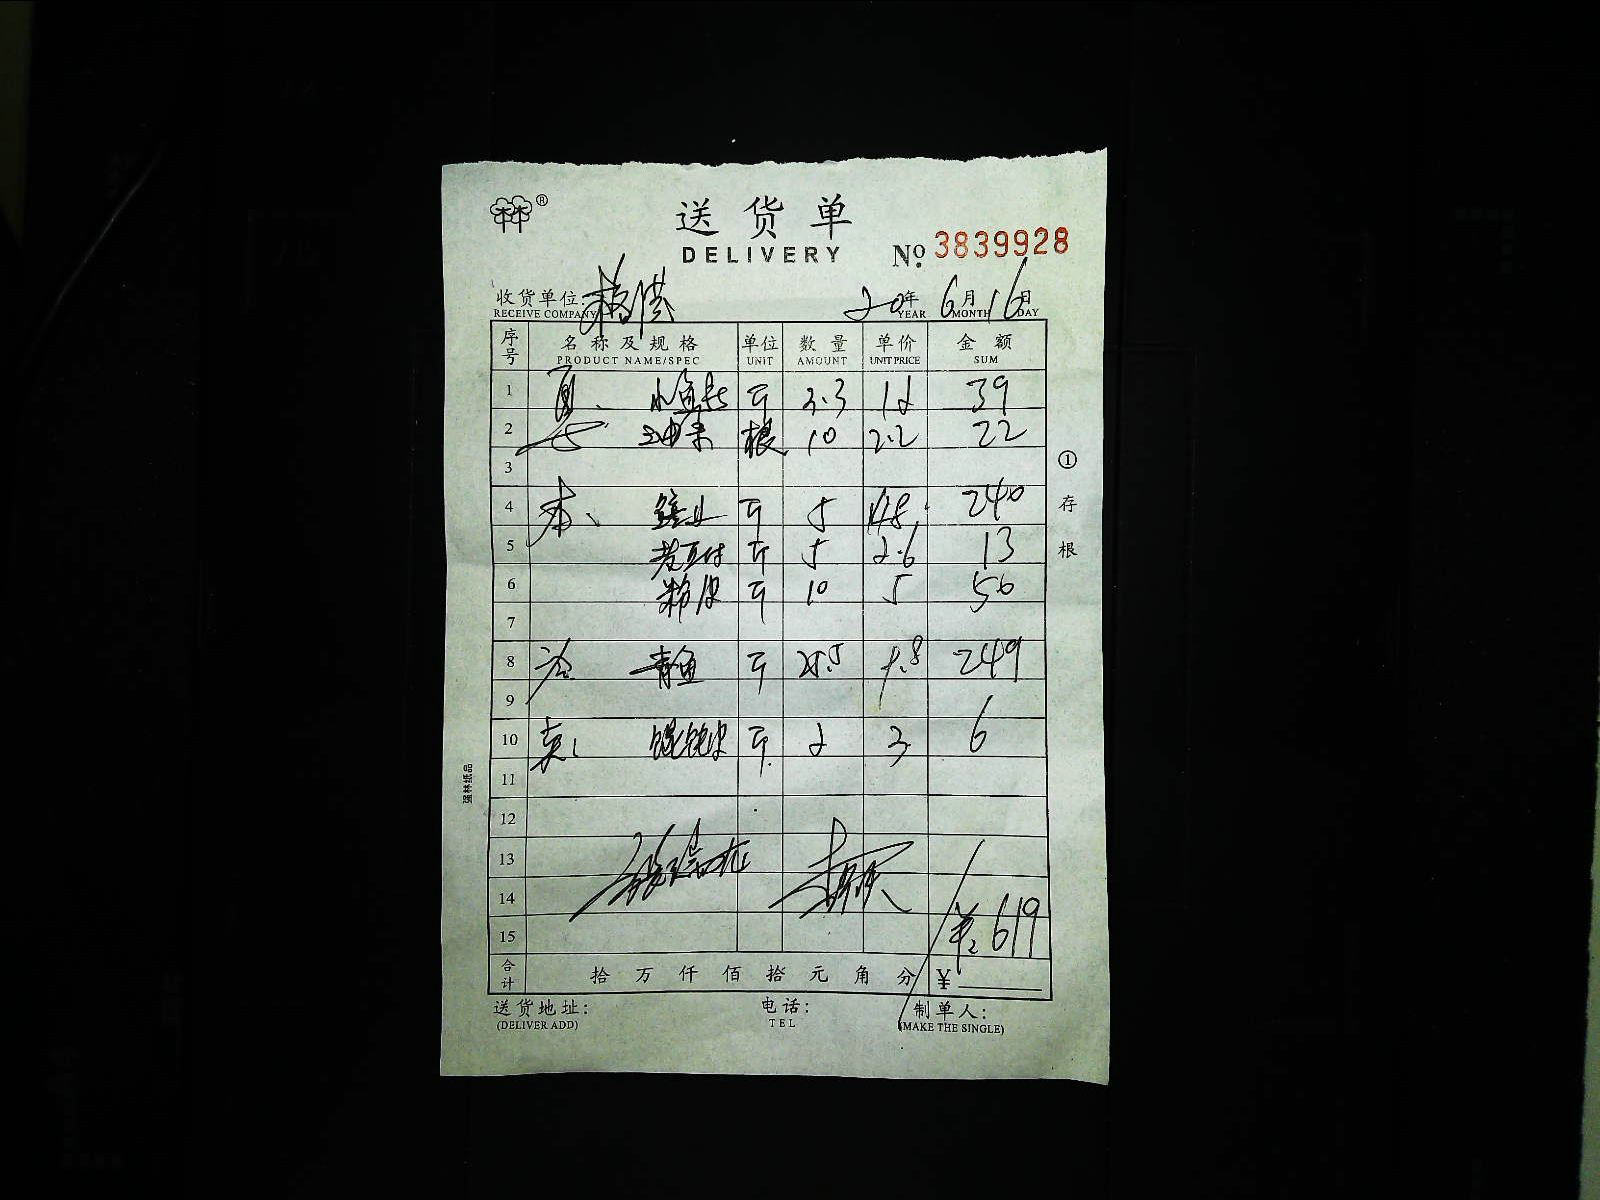 林®
送货单
DELIVERY
No. 3839928
收货单位:
RECEIVE COMPANY
20年 6月 16日
YEAR MONTH DAY
序号 名称及规格 单位 数量 单价 金额
PRODUCT NAME/SPEC UNIT AMOUNT UNIT PRICE SUM
1 斤 3.3 12 39
2 油条 根 10 2.2 22
3
4 斤 5 48 240
5 斤 5 2.6 13
6 粉皮 斤 10 5 50
7
8 青鱼 斤 25.5 9.8 249
9
10 馄饨皮 斤 2 3 6
11
12
13
14
15 ¥: 619
合计 拾 万 仟 佰 拾 元 角 分 ¥
送货地址: 电话: 制单人:
(DELIVER ADD) TEL (MAKE THE SINGLE)
①存根
强林纸品